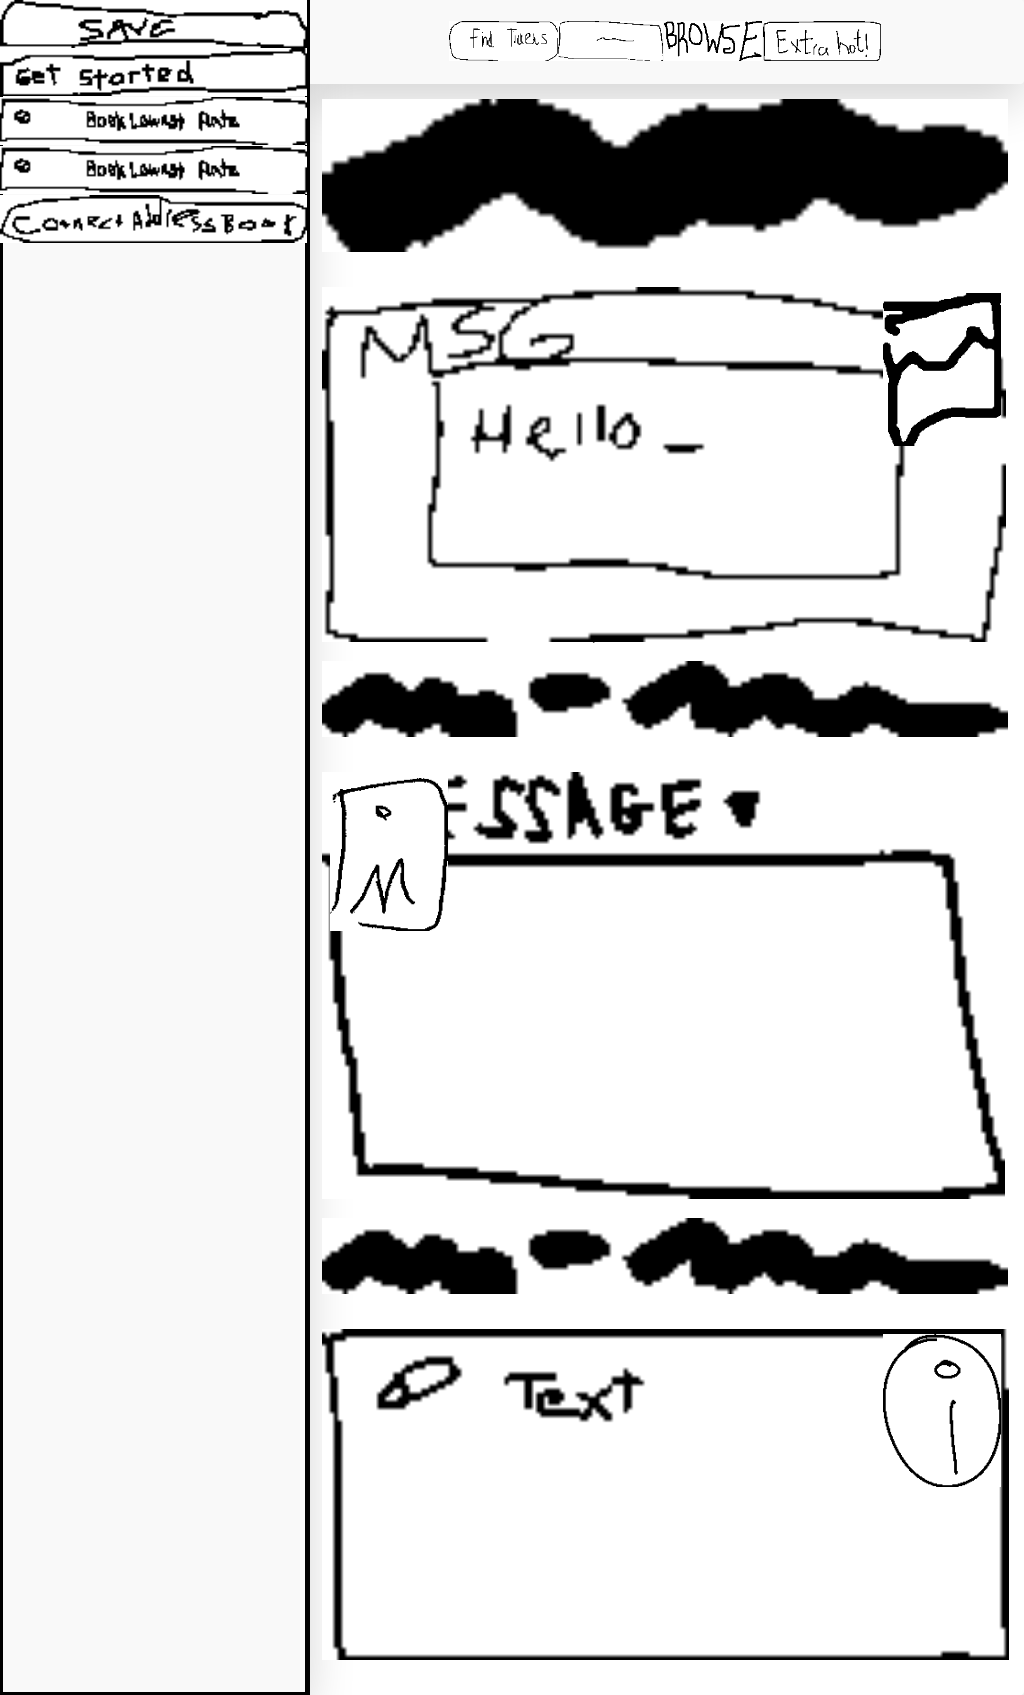 SAVE
Get Started
Book Lowest Rate
Book Lowest Rate
Connect Address Book
Find
BROWSE
Extra hot!
MSG
Hello_
ESSAGE
M
Text